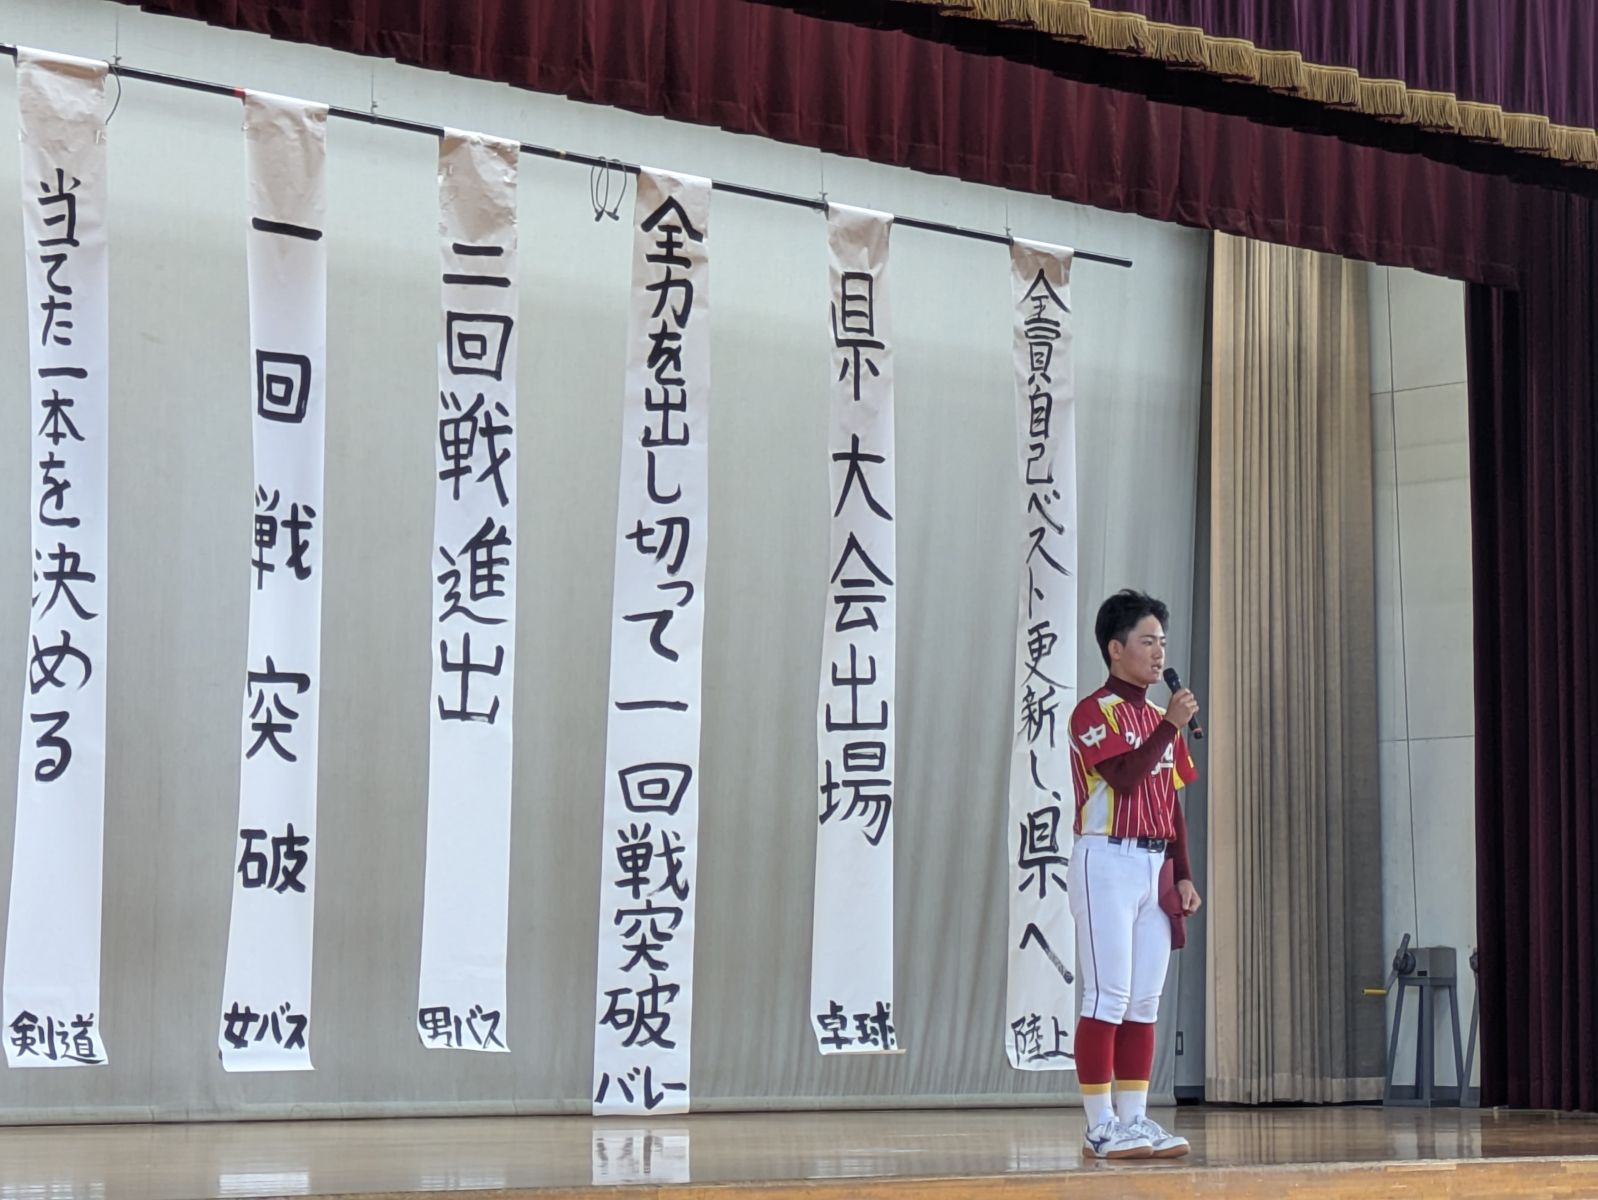 全員自己ベスト更新し、県へ
陸上
県大会出場
卓球
全力を出し切って一回戦突破
バレー
二回戦進出
男バス
一回戦突破
女バス
当てた一本を決める
剣道
中